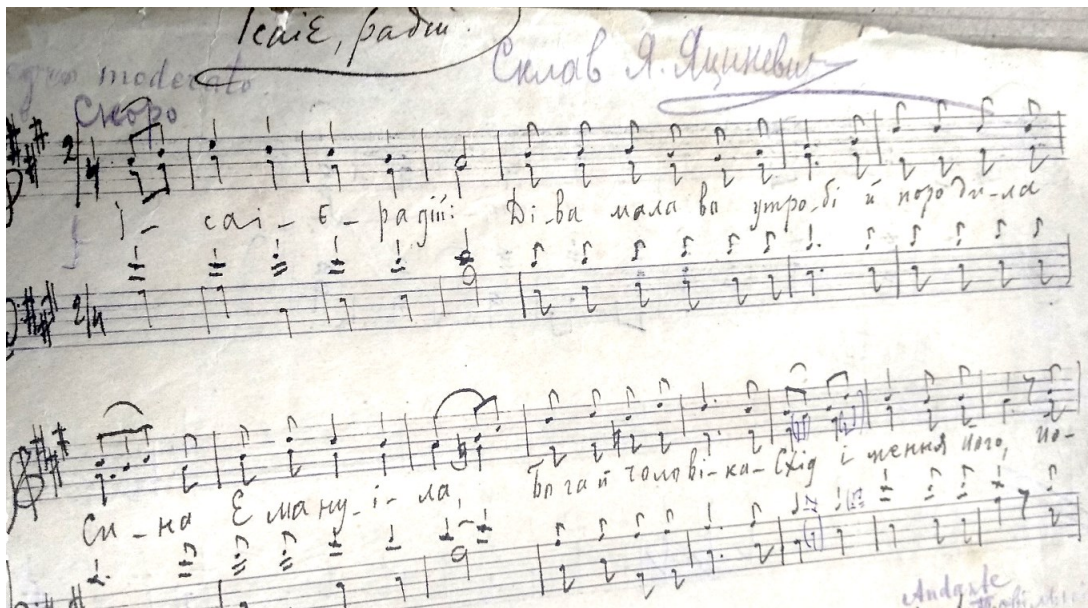 Ісаіє, радій.
Склав Я. Яциневич
moderato
Скоро
2/4
І - саі - є - радій: Ді-ва мала во утро-бі й породи-ла
2/4
Си-на Е ману-і-ла, Бога й чолові-ка-Схід і мення його, по-
Andante